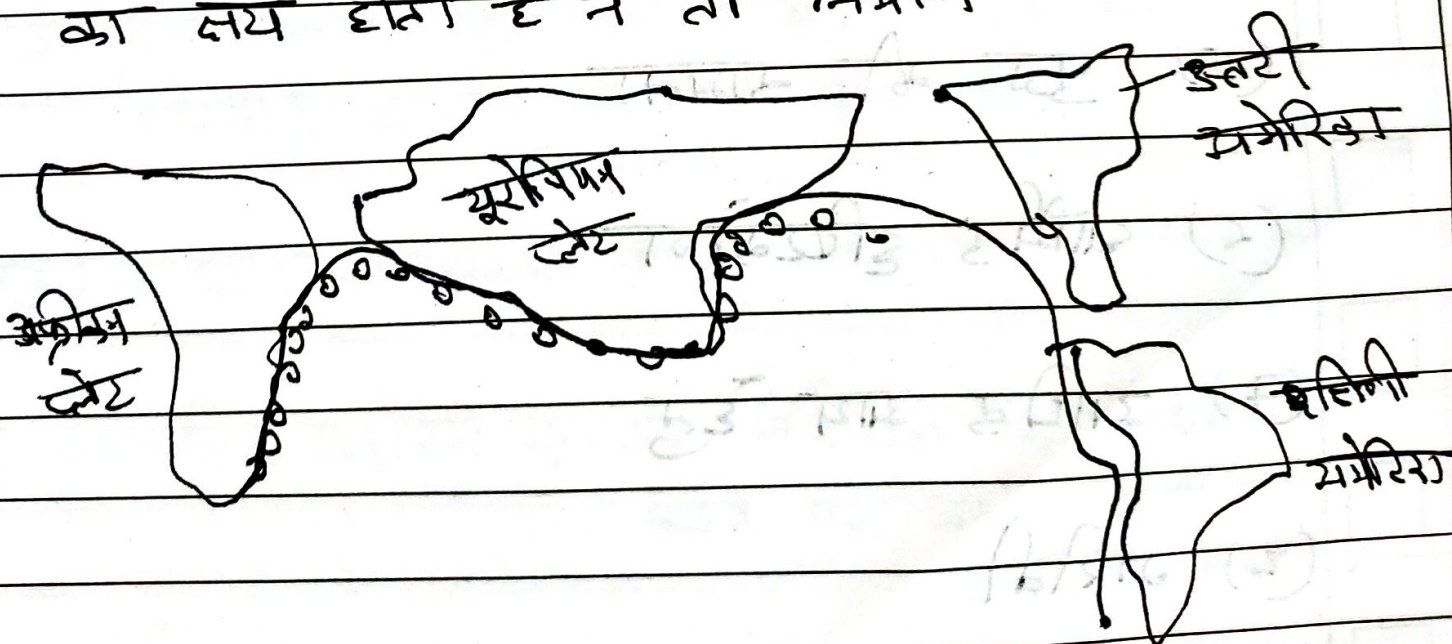 का क्षय होता है न तो
उत्तरी
अमेरिका
यूरेशियन
प्लेट
अफ्रीकन
प्लेट
दक्षिणी
अमेरिका